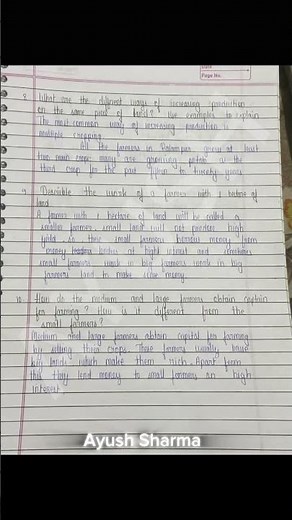 Page No.
8. What are the different ways of increasing production
on the same piece of land? Use examples to explain
The most common way of increasing production is
multiple cropping
All the farmers in Palampur grow at least
two main crops many are growing potato as the
third crop for the past fifteen to twenty years
9. Describe the work of a farmer with 1 hectare of
land
A farmer with 1 hectare of land will be called a
smaller farmer, small land will not produce high
yield so these small farmers borrow money from
money at high interest and sometimes
small farmers work in big farmers
farmers land to make some money.
10. How do the medium and large farmers obtain capital
for farming? How is it different from the
small farmers?
Medium and large farmers obtain capital for farming
by selling their crops. These farmers usually have
big lands which make them rich. Apart from
this they lend money to small farmers on high
interest
Ayush Sharma